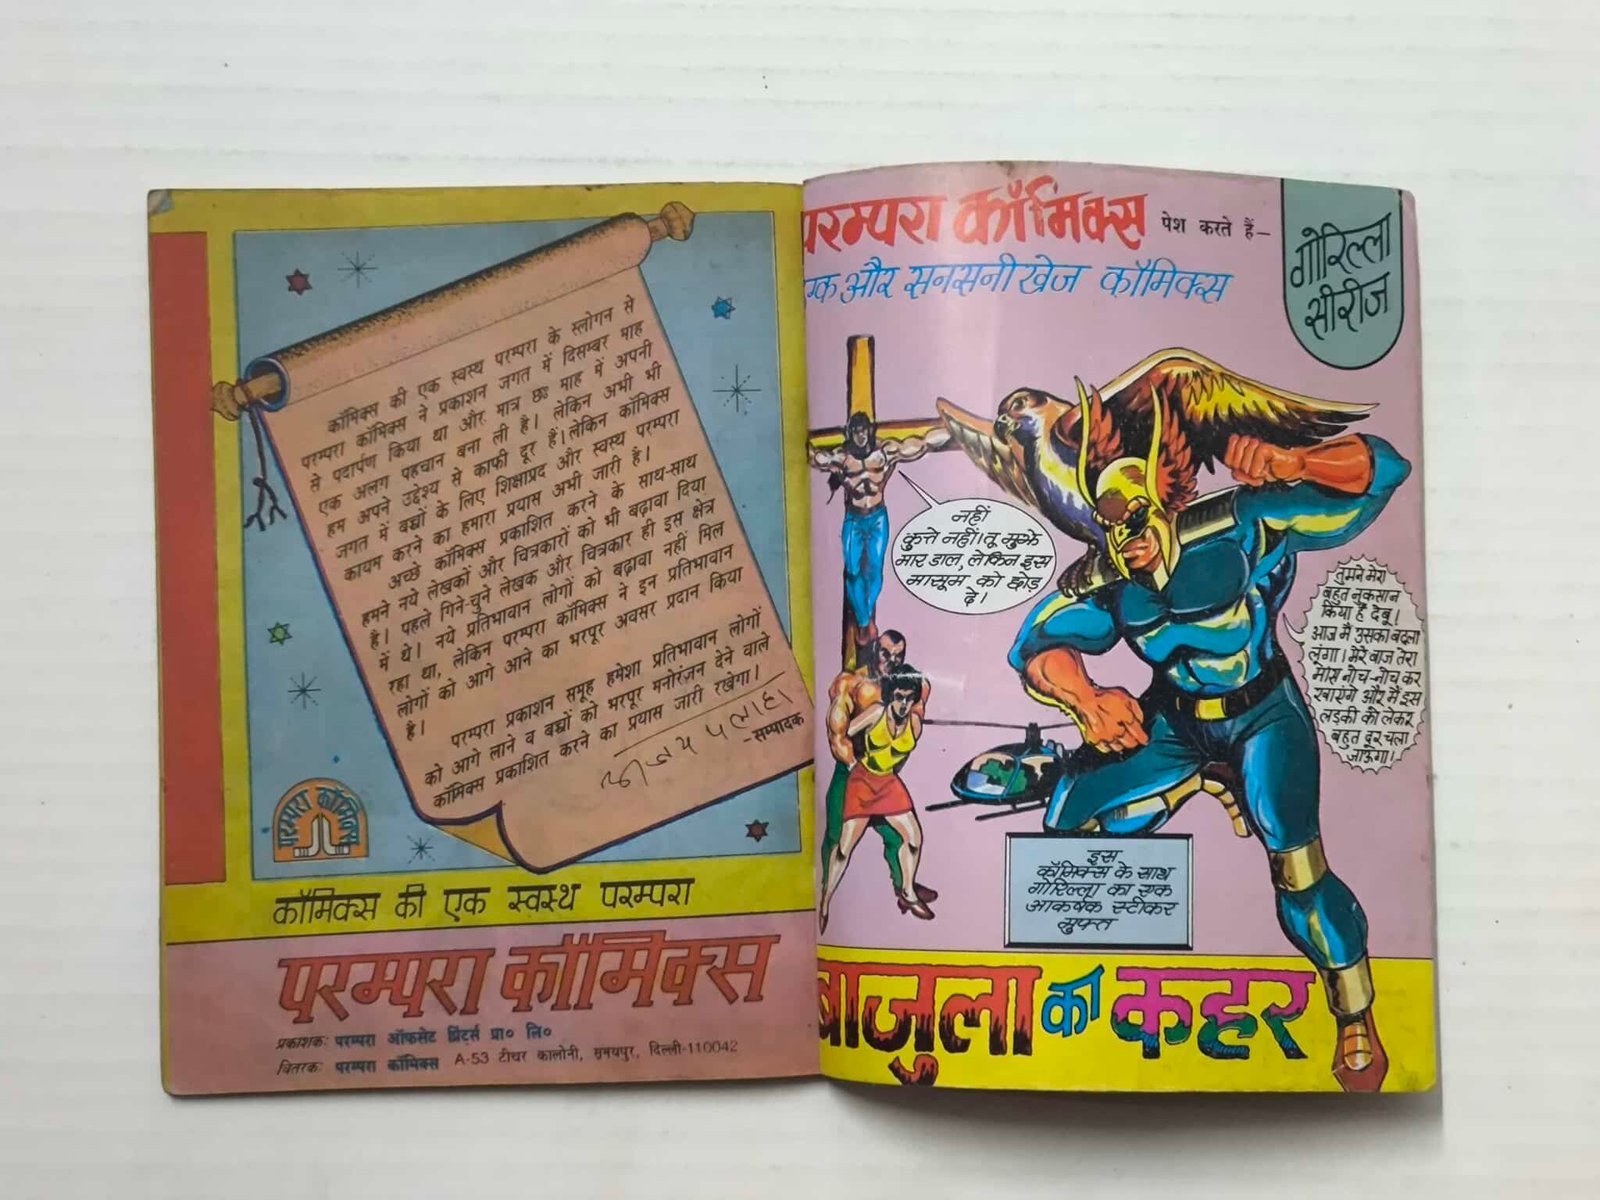 कॉमिक्स की एक स्वस्थ परम्परा के स्लोगन से
परम्परा कॉमिक्स ने प्रकाशन जगत में दिसम्बर माह
से पदार्पण किया था और मात्र छः माह में अपनी
एक अलग पहचान बना ली है। लेकिन अभी भी
हम अपने उद्देश्य से काफी दूर हैं। लेकिन कॉमिक्स
जगत में बच्चों के लिए शिक्षाप्रद और स्वस्थ परम्परा
कायम करने का हमारा प्रयास अभी जारी है।
अच्छे कॉमिक्स प्रकाशित करने के साथ-साथ
हमने नये लेखकों और चित्रकारों को भी बढ़ावा दिया
है। पहले गिने चुने लेखक और चित्रकार ही इस क्षेत्र
में थे। नये प्रतिभावान लोगों को बढ़ावा नहीं मिल
रहा था, लेकिन परम्परा कॉमिक्स ने इन प्रतिभावान
लोगों को आगे आने का भरपूर अवसर प्रदान किया
है।
परम्परा प्रकाशन समूह हमेशा प्रतिभावान लोगों
को आगे लाने व बच्चों को भरपूर मनोरंजन देने वाले
कॉमिक्स प्रकाशित करने का प्रयास जारी रखेगा।
-सम्पादक
परम्परा कॉमिक्स
कॉमिक्स की एक स्वस्थ परम्परा
परम्परा कॉमिक्स
प्रकाशकः परम्परा ऑफसेट प्रिंटर्स प्रा० लि०
वितरकः परम्परा कॉमिक्स A-53 टीचर कालोनी, समयपुर, दिल्ली-110042
परम्परा कॉमिक्स पेश करते हैं-
एक और सनसनीखेज कॉमिक्स
गोरिल्ला
सीरीज
नहीं
कुत्ते नहीं। तू मुझे
मार डाल, लेकिन इस
मासूम को छोड़
दे।
तुमने मेरा
बहुत नुकसान
किया है देबू।
आज मैं उसका बदला
लूंगा। मेरे बाज तेरा
मांस नोच-नोच कर
खायेंगे और मैं इस
लड़की को लेकर
बहुत दूर चला
जाऊंगा।
इस
कॉमिक्स के साथ
गोरिल्ला का एक
आकर्षक स्टीकर
मुफ्त
बाजुला का कहर